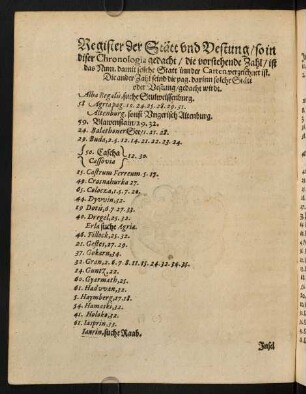 Register der Stätt vnd Vestung/ so in
diser Chronologia gedacht/ die vorstehende Zahl/ ist
das Num. damit solche Statt inn der Carten verzeichnet ist.
Die ander Zahl seind die pag. darinn solche Stätt
oder Vestung/ gedacht wirdt.
Alba Regalis, suche Stulweissenburg.
58 Agria pag. 12. 24. 25. 28. 29. 31.
Altenburg, sonst Vngerisch Altenburg.
59. Blawenstain/ 29. 32.
24. Balathoner See/ 21. 28.
29. Buda, 2. 5. 12. 14. 21. 22. 23. 24.
50. Cascha
Cassovia 12. 30.
25. Castrum Ferreum 5. 17.
49. Crasnahurka 27.
65. Colocza, 1. 5. 7. 20.
44. Dywein, 32.
29 Dotis, 6. 7. 27. 33.
40. Dregel, 25. 32.
Erla suche Agria.
46. Filleck, 25. 32.
21. Gestes, 27. 29.
37. Gokara, 34.
32. Gran, 2. 6. 7. 8. 11. 13. 24. 32. 34. 35.
24. Guntz, 22.
60. Gyermath, 25.
61. Hadwan, 32.
5. Haymberg, 17. 18.
54. Hamaski, 32.
41. Holoka, 32.
61. Iasprin, 33.
Iaurin, suche Raab.
Insel